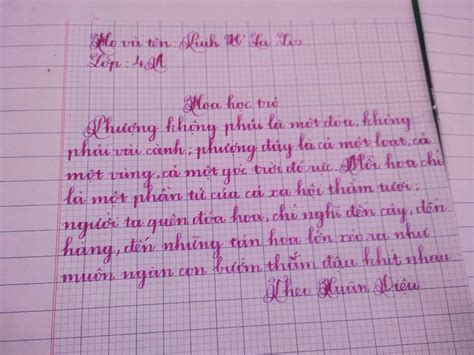 Họ và tên: Linh H' La
Lớp: 4A
Hoa học trò
Phượng không phải là một đóa, không
phải vài cành; phượng đây là cả một loạt, cả
một vùng, cả một góc trời đỏ rực. Mỗi hoa chỉ
là một phần tử của cả xã hội thắm tươi;
người ta quên đóa hoa, chỉ nghĩ đến cây, đến
hàng, đến những tán hoa lớn xòe ra như
muôn ngàn con bướm thắm đậu khít nhau.
Theo Xuân Diệu